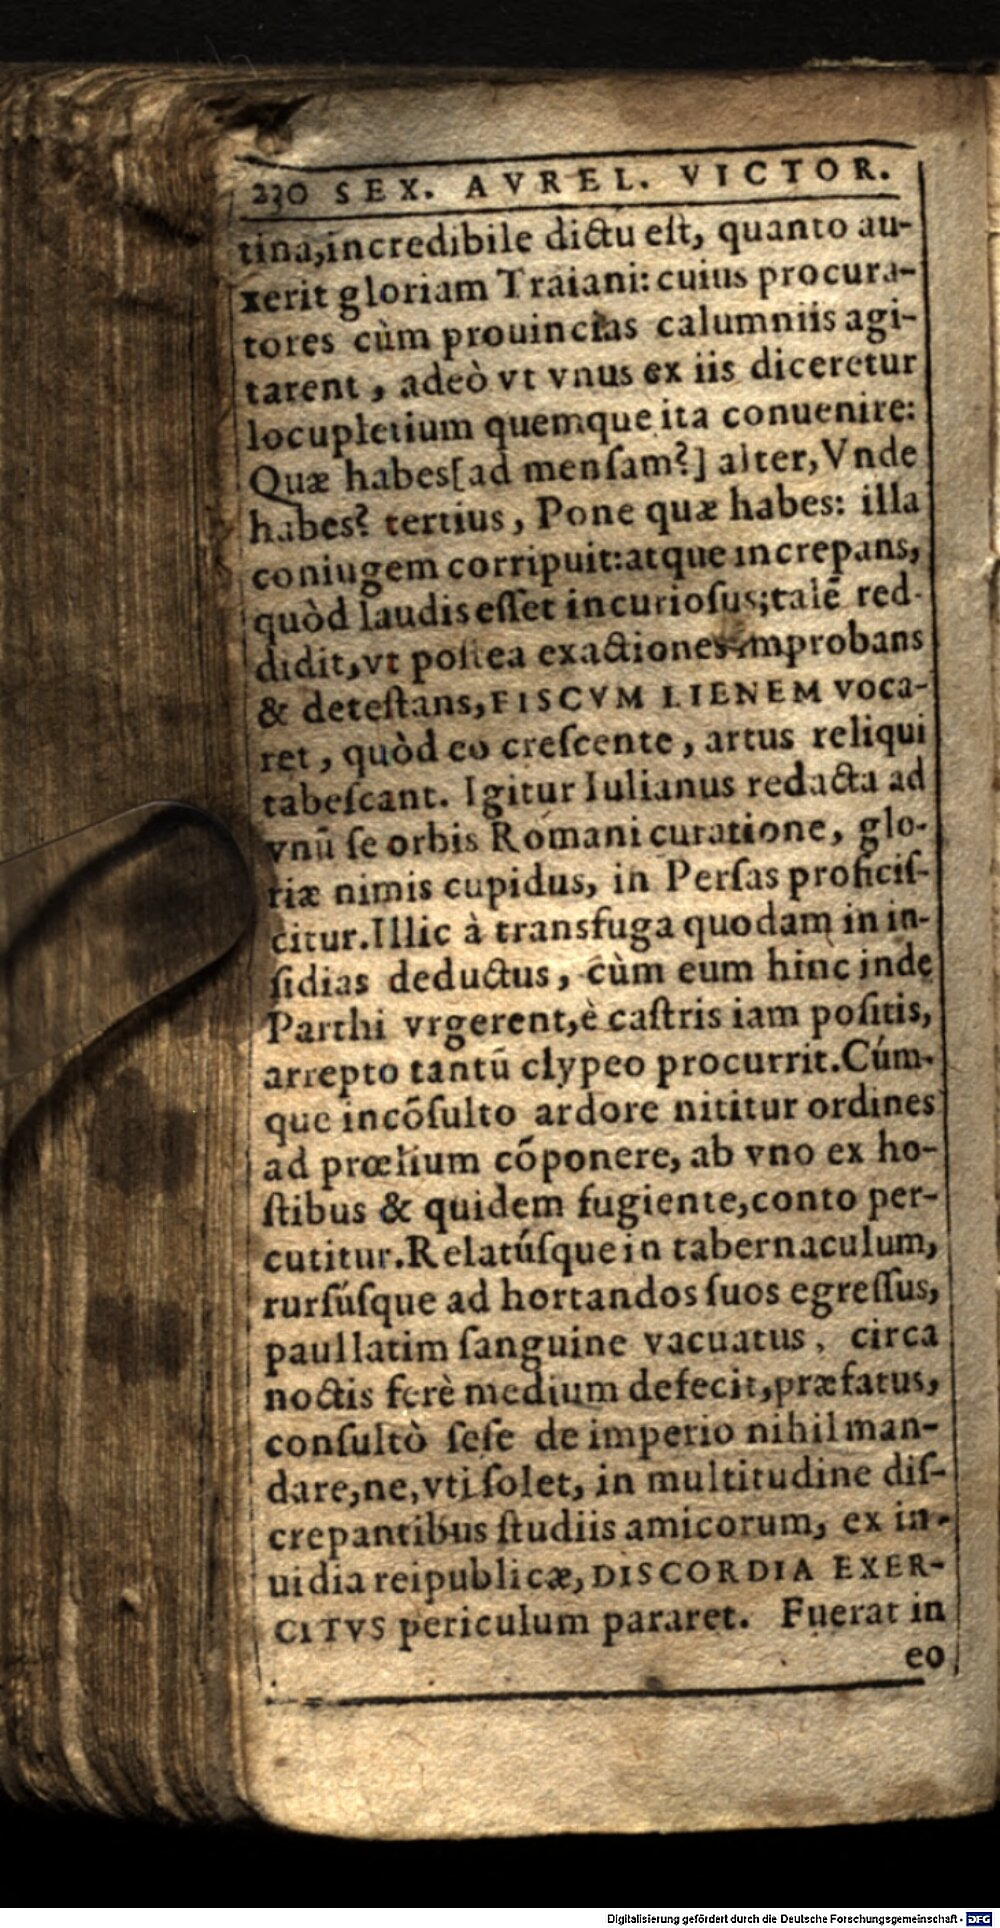 230 SEX. AVREL. VICTOR.
tina,incredibile dictu eſt, quanto au-
xerit gloriam Traiani: cuius procura-
tores cùm prouincias calumniis agi-
tarent, adeò vt vnus ex iis diceretur
locupletium quemque ita conuenire:
Quæ habes[ad menſam?] alter,Vnde
habes? tertius, Pone quæ habes: illa
coniugem corripuit:atque increpans,
quòd laudis eſſet incurioſus;talē red-
didit,vt poſtea exactiones improbans
& deteſtans,FISCVM LIENEM voca-
ret, quòd eo creſcente, artus reliqui
tabeſcant. Igitur Iulianus redacta ad
vnū ſe orbis Romani curatione, glo-
riæ nimis cupidus, in Perſas proficiſ-
citur.Illic à transfuga quodam in in-
ſidias deductus, cùm eum hinc inde
Parthi vrgerent,è caſtris iam poſitis,
arrepto tantū clypeo procurrit.Cúm-
que incōſulto ardore nititur ordines
ad prœlium cōponere, ab vno ex ho-
ſtibus & quidem fugiente,conto per-
cutitur.Relatúſque in tabernaculum,
rurſúſque ad hortandos ſuos egreſſus,
paullatim ſanguine vacuatus, circa
noctis ferè medium defecit,præfatus,
conſultò ſeſe de imperio nihil man-
dare,ne,vti ſolet, in multitudine diſ-
crepantibus ſtudiis amicorum, ex in-
uidia reipublicæ,DISCORDIA EXER-
CITVS periculum pararet. Fuerat in
eo
Digitalisierung gefördert durch die Deutsche Forschungsgemeinschaft - DFG